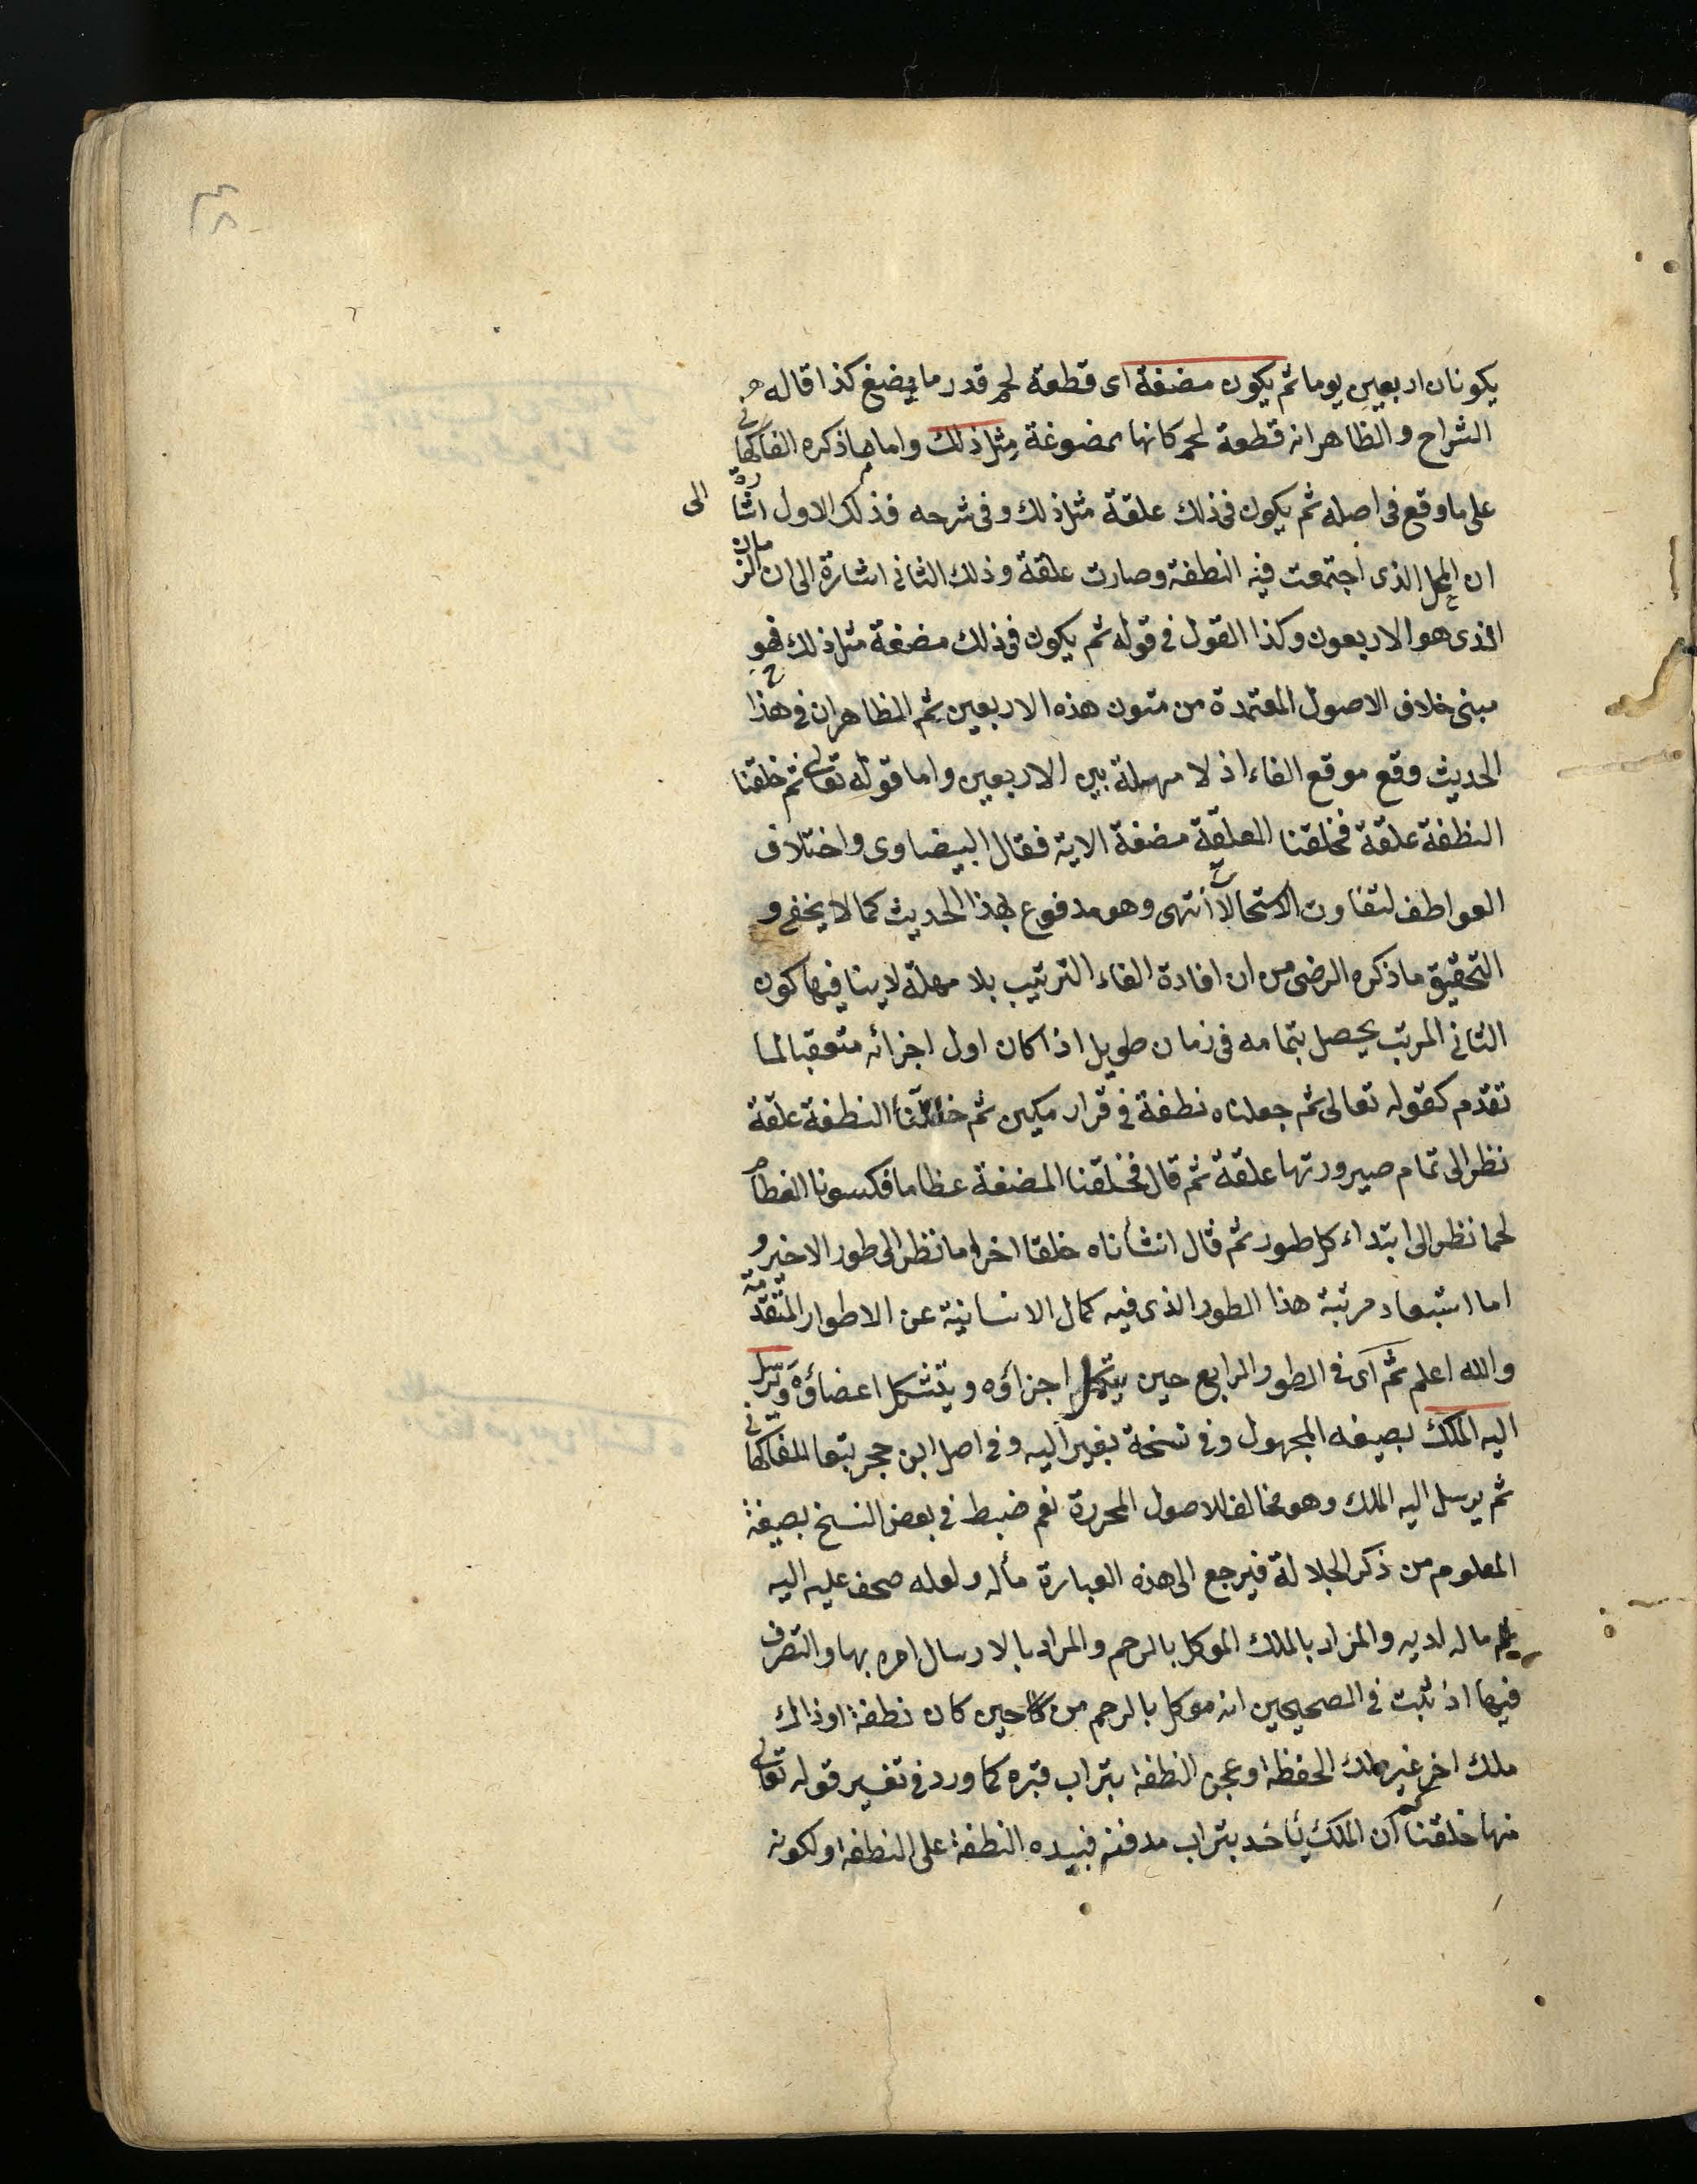 يكونان اربعين يوما ثم يكون مضغة اى قطعة لحم قدر ما يمضغ كذا قاله
الشراح والظاهر انه قطعة لحم كانها ممضوغة مثل ذلك واما ما ذكره الفاكهانى
على ما وقع فى اصله ثم يكون فى ذلك علقة مثل ذلك وفى شرحه فذلك الاول اشارة الى
ان المحل الذى اجتمعت فيه النطفة وصارت علقة وذلك الثانى اشارة الى ان الزمان
الذى هو الاربعون وكذا القول فى قوله ثم يكون فى ذلك مضغة مثل ذلك فهو
مبنى خلاف الاصول المعتمدة من متون هذه الاربعين ثم الظاهر ان فى هذا
الحديث وقع موقع الفاء اذ لا مهملة بين الاربعين واما قوله تعالى ثم خلقنا
النطفة علقة فخلقنا العلقة مضغة الاية فقال البيضاوى واختلاف
العواطف لتفاوت الاستحالات انتهى وهو مدفوع بهذا الحديث كما لا يخفى و
التحقيق ما ذكره الرضى من ان افادة الفاء الترتيب بلا مهلة لا ينافيها كون
الثانى المرتب يحصل بتمامه فى زمان طويل اذا كان اول اجزائه متعقبا لما
تقدم كقوله تعالى ثم جعلناه نطفة فى قرار مكين ثم خلقنا النطفة علقة
نظر الى تمام صيرورتها علقة ثم قال فخلقنا المضغة عظاما فكسونا العظام
لحما نظر الى ابتداء كل طور ثم قال انشأناه خلقا اخر اما نظر الى طور الاخير و
اما استبعاد مرتبة هذا الطور الذى فيه كمال الانسانية عن الاطوار المتقدمة
والله اعلم ثم اى فى الطور الرابع حين يتكمل اجزاؤه ويتشكل اعضاؤه ويرسل
اليه الملك بصيغه المجهول وفى نسخة بغير اليه وفى اصل ابن حجر تبعا للفاكهانى
ثم يرسل اليه الملك وهو مخالف للاصول المحررة نعم ضبط فى بعض النسخ بصيغة
المعلوم من ذكر الجلالة فيرجع الى هذه العبارة مأله ولعله صحف عليه اليه
ما له لديه والمراد بالملك الموكل بالرحم والمراد بالارسال امره بها والتصرف
فيها اذ ثبت فى الصحيحين انه موكل بالرحم من حين كان نطفة او ذالك
ملك اخر غير ملك الحفظه او عجن النطفة بتراب قبره كما ورد فى تفسير قوله تعالى
منها خلقناكم ان الملك يأخد بتراب مدفنه فيبده النطفة على النطفه ولكونه